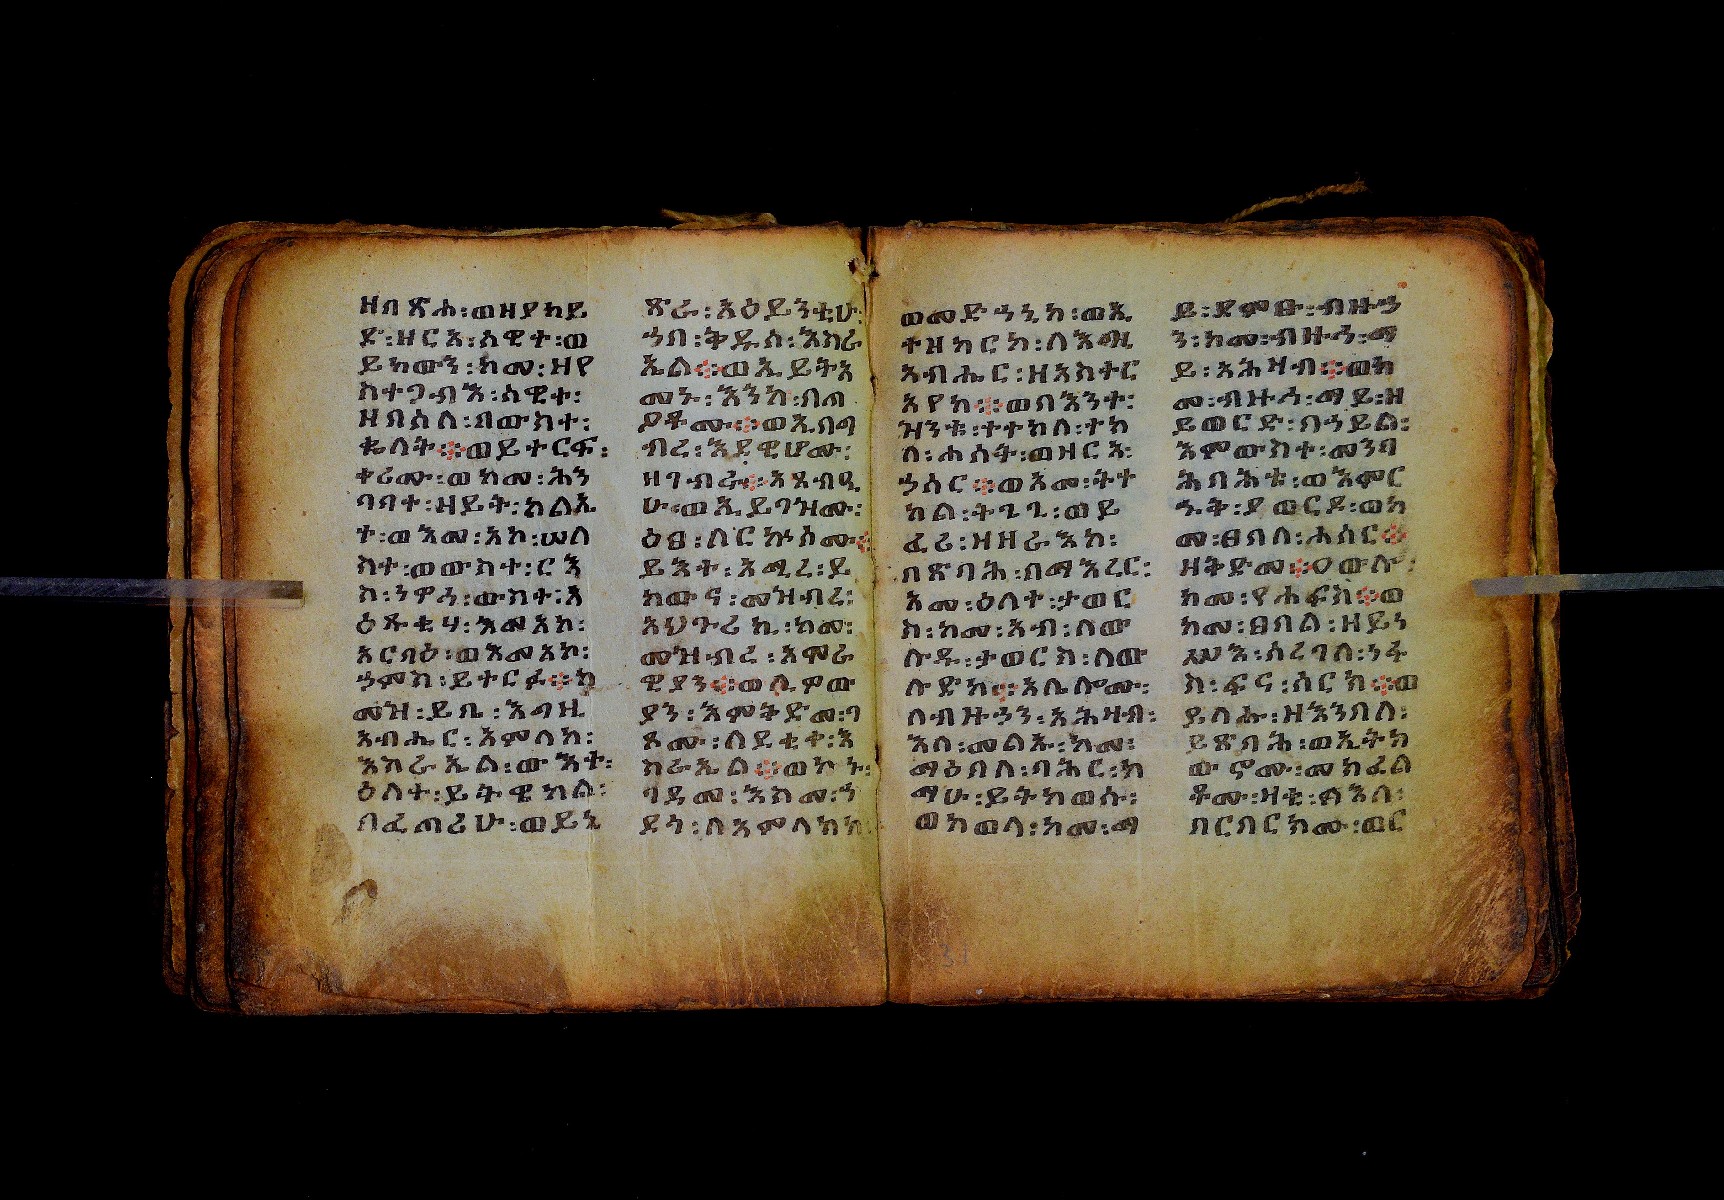 ዘበጽሐ፡ወዘያከይ
ድ፡ዘርአ፡ሰዊተ፡ወ
ይከውን፡ከመ፡ዘየ
ስተጋብእ፡ሰዊተ፡
ዘበሰለ፡በውስተ፡
ቈላት፨ወይተርፍ፡
ቀሪሙ፡ወከመ፡ሕን
ባባተ፡ዘይት፡ክልኤ
ተ፡ወእመ፡አኮ፡ሠለ
ስተ፡ውስተ፡ርእ
ስ፡ነዋኅ፡ውስተ፡አ
ዕጹቂሃ፡እመአኮ፡
አርባዕ፡ወእመአኮ፡
ኃምስ፡ይተርፉ፨ከ
መዝ፡ይቤ፡እግዚ
አብሔር፡አምላከ፡
እስራኤል፡ውእተ፡
ዕለተ፡ይትዌከል፡
በፈጣሪሁ፡ወይኔ
ጽራ፡አዕይንቲሁ፡
ኀበ፡ቅዱሰ፡እስራ
ኤል፨ወኢይትአ
መኑ፡እንከ፡በጣ
ዖቶሙ፨ወኢበግ
ብረ፡እደዊሆሙ፡
ዘገብሩ፨አጻብዒ
ሁ፡ወኢይባዝሙ፡
ዕፀ፡ለርኵሰሙ፨
ይእተ፡አሚረ፡ይ
ከውና፡መዝብረ፡
አህጉሪከ፡ከመ፡
መዝብረ፡አሞራ
ዊያን፨ወኤዎው
ያን፡እምቅድመ፡ገ
ጾሙ፡ለደቂቀ፡እ
ስራኤል፨ወኮኑ፡
ባዳመ፡እስመ፡ኀ
ደጎ፡ለአምላክከ
ወመድኀኒከ፡ወኢ
ተዘከርኮ፡ለእግዚ
አብሔር፡ዘአስተር
አየከ፨ወበእንተ፡
ዝንቱ፡ተተከለ፡ተከ
ለ፡ሐሰት፡ወዘርአ፡
ኃሰር፨ወአመ፡ትተ
ከል፡ትጌጊ፡ወይ
ፈሪ፡ዘዘራእከ፡
በጽባሕ፡በማእረር፡
አመ፡ዕለተ፡ታወር
ስ፡ከመ፡አብ፡ለው
ሉዱ፡ታወርስ፡ለው
ሉድከ፨አሌሎሙ፡
ለብዙኃን፡አሕዛብ፡
እለ፡መልኡ፡ከመ፡
ማዕበለ፡ባሕር፡ከ
ማሁ፡ይትከወሱ፡
ወከወላ፡ከመ፡ማ
ይ፡ደምፁ፡ብዙኃ
ን፡ከመ፡ብዙኅ፡ማ
ይ፡አሕዛብ፨ወከ
መ፡ብዙኅ፡ማይ፡ዘ
ይወርድ፡በኃይል፡
እምውስተ፡መንባ
ሕብሕቱ፡ወእምር
ኁቅ፡ያወርዶ፡ወከ
መ፡ፀበለ፡ሐሰር፨
ዘቅድመ፨ዐውሎ፡
ከመ፡የሐፍስ፨ወ
ከመ፡ፀበል፡ዘይነ
ሥእ፡ሰረገለ፡ነፋ
ስ፡ፍና፡ሰርክ፨ወ
ይላሑ፡ዘእንበለ፡
ይጽባሕ፡ወኢትከ
ውኖሙ፡መክፈል
ቶሙ፡ዘቲ፡ለእለ፡
በርበርክሙ፡ወር